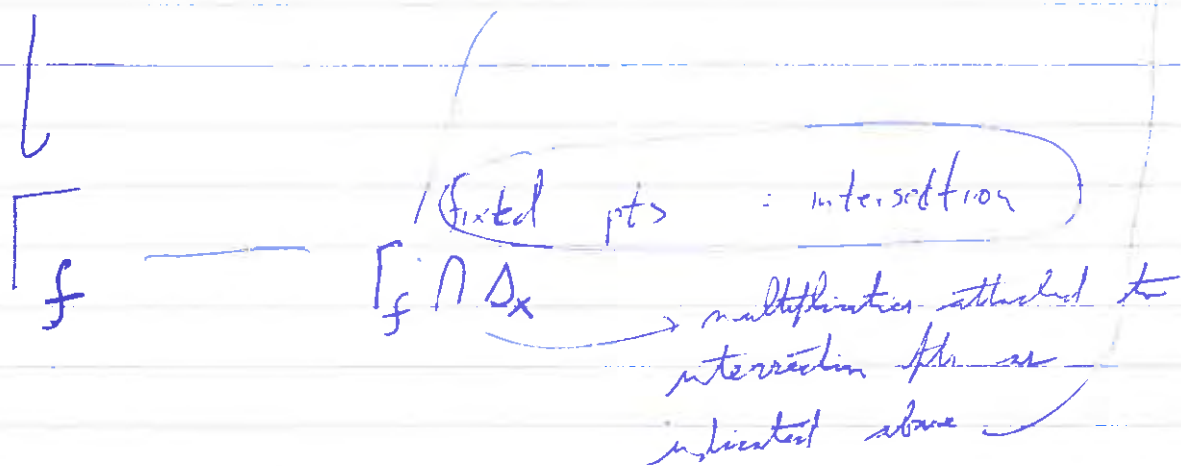 fixed pts = intersection
Γ_f — Γ_f ∩ Δ_X
multiplicities attached to
intersection pts as
indicated above